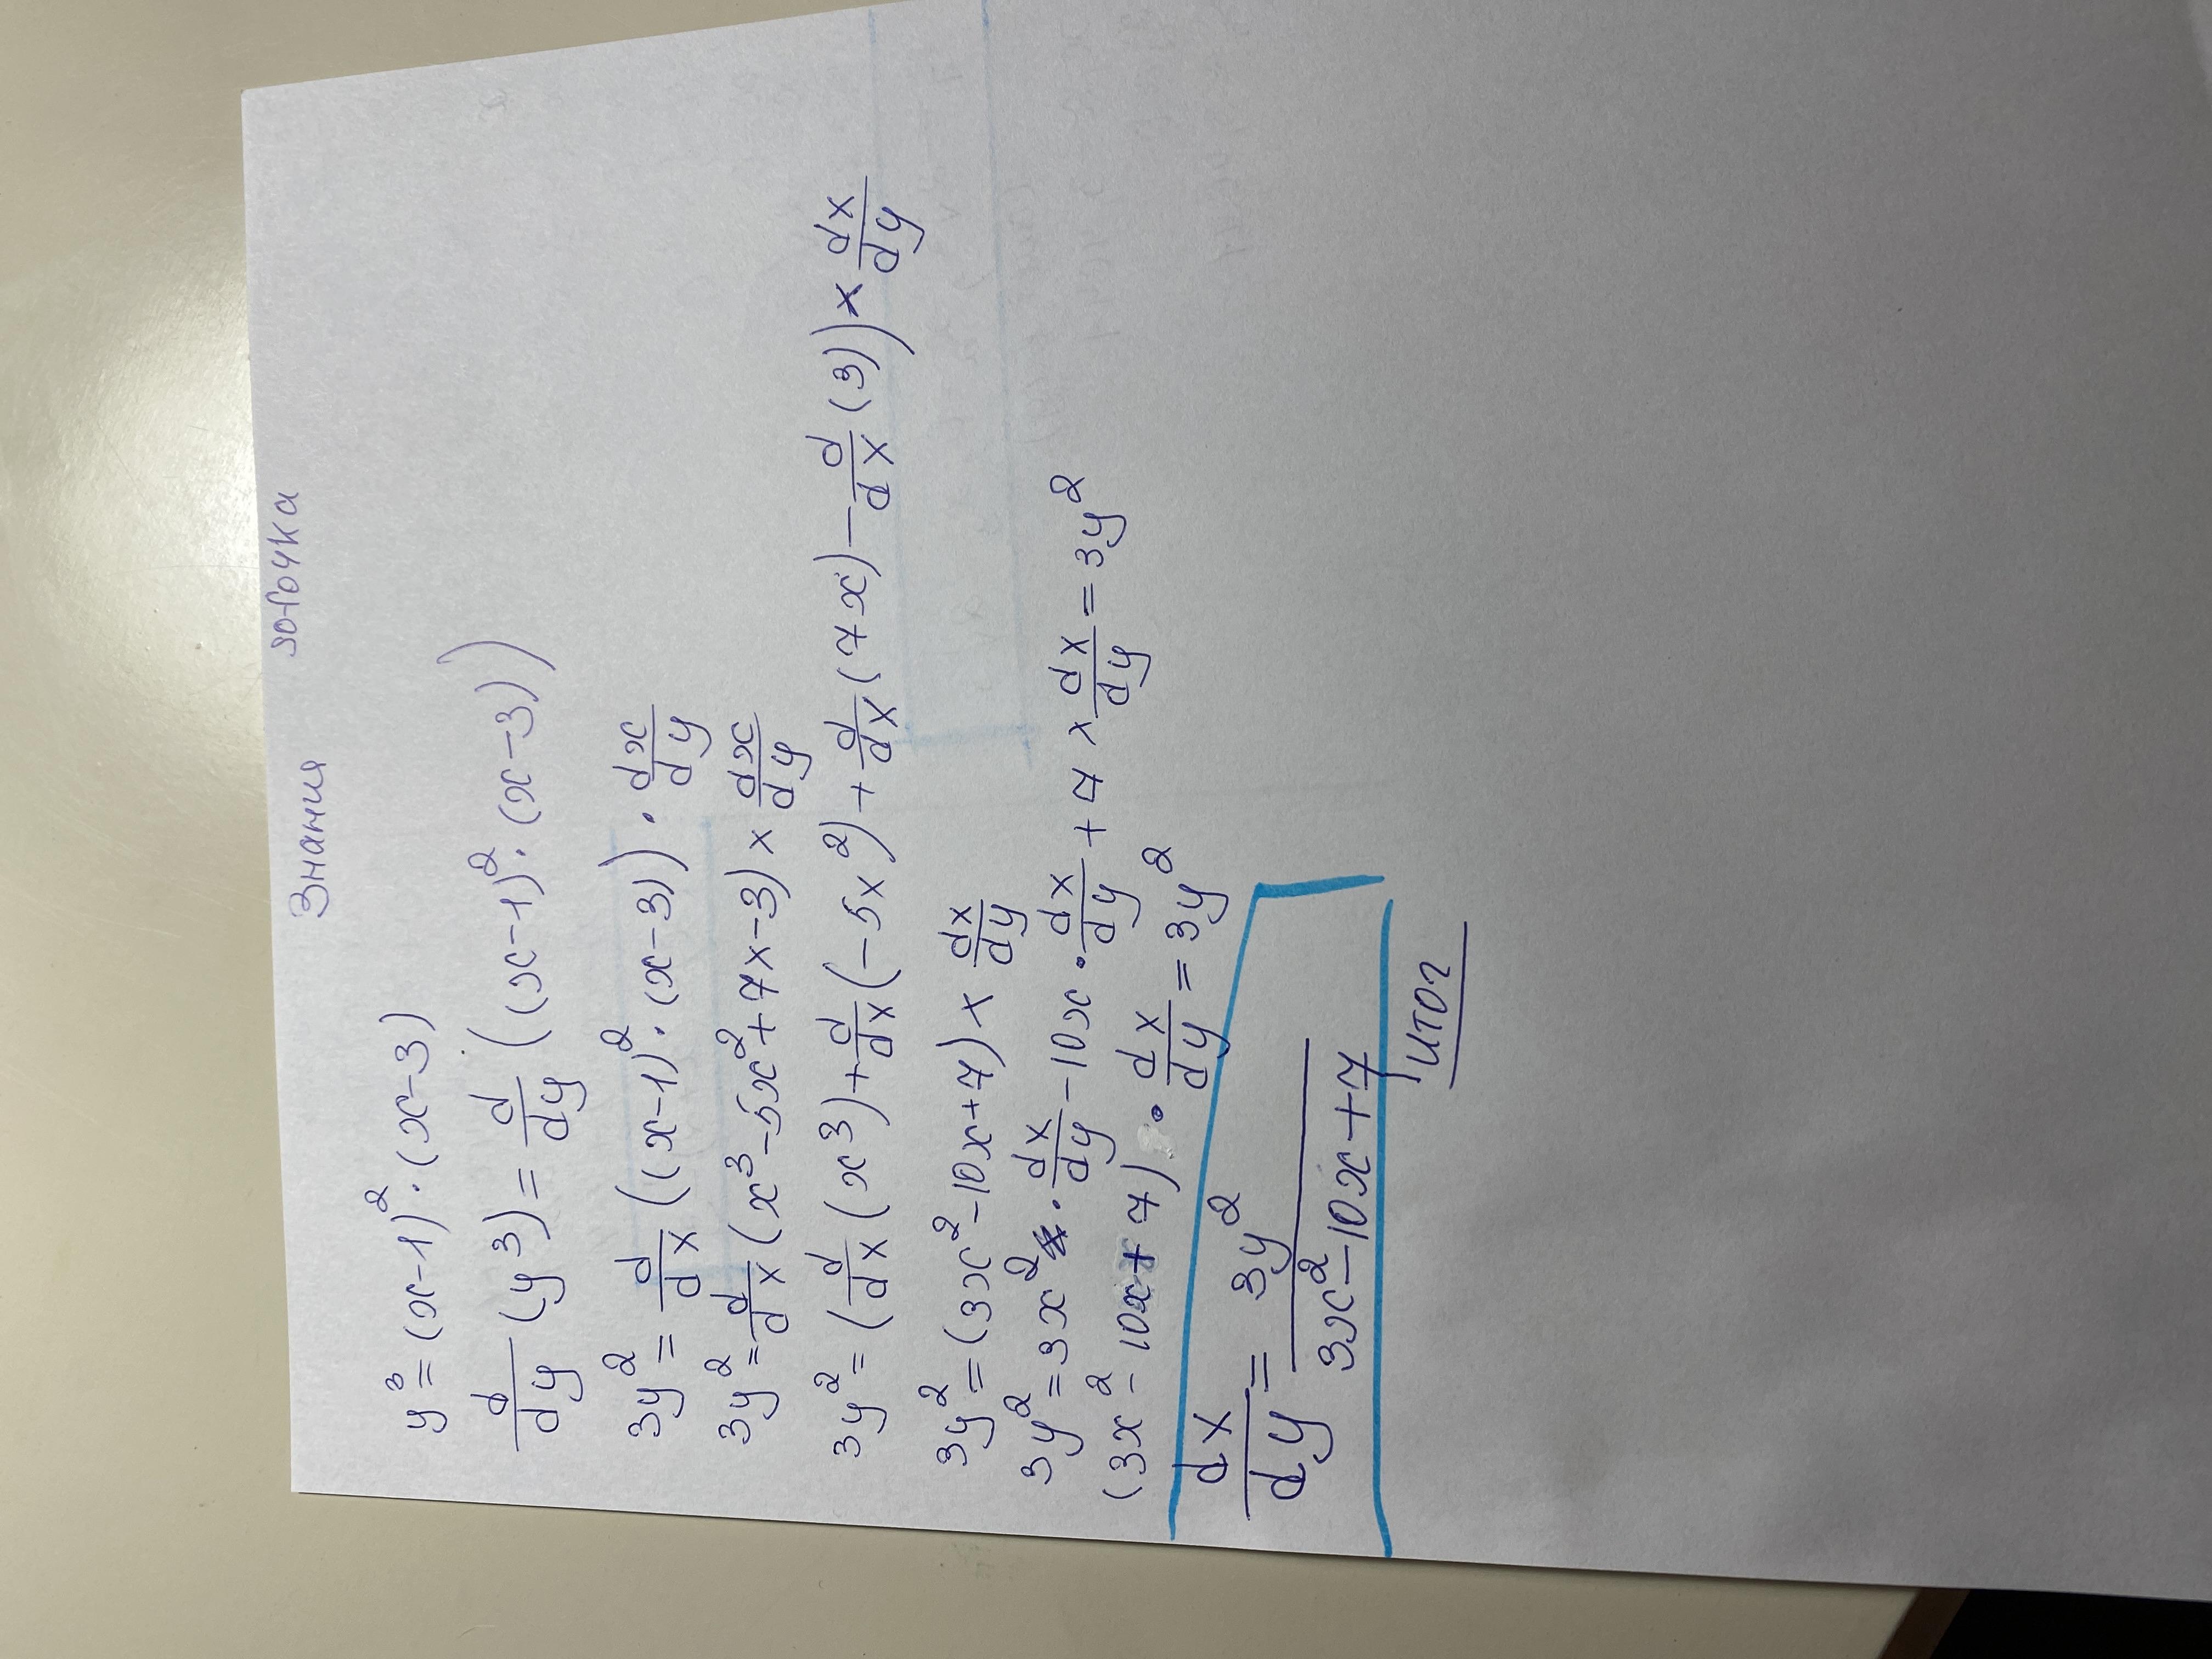 Знания зогочка
y³ = (x-1)² · (x-3)
d/dy (y³) = d/dy ((x-1)² · (x-3))
3y² = d/dx ((x-1)² · (x-3)) · dx/dy
3y² = d/dx (x³ - 5x² + 7x - 3) × dx/dy
3y² = (d/dx (x³) + d/dx (-5x²) + d/dx (7x) - d/dx (3)) × dx/dy
3y² = (3x² - 10x + 7) × dx/dy
3y² = 3x² · dx/dy - 10x · dx/dy + 7 × dx/dy = 3y²
(3x² - 10x + 7) · dx/dy = 3y²
dx/dy = 3y² / 3x² - 10x + 7
итог